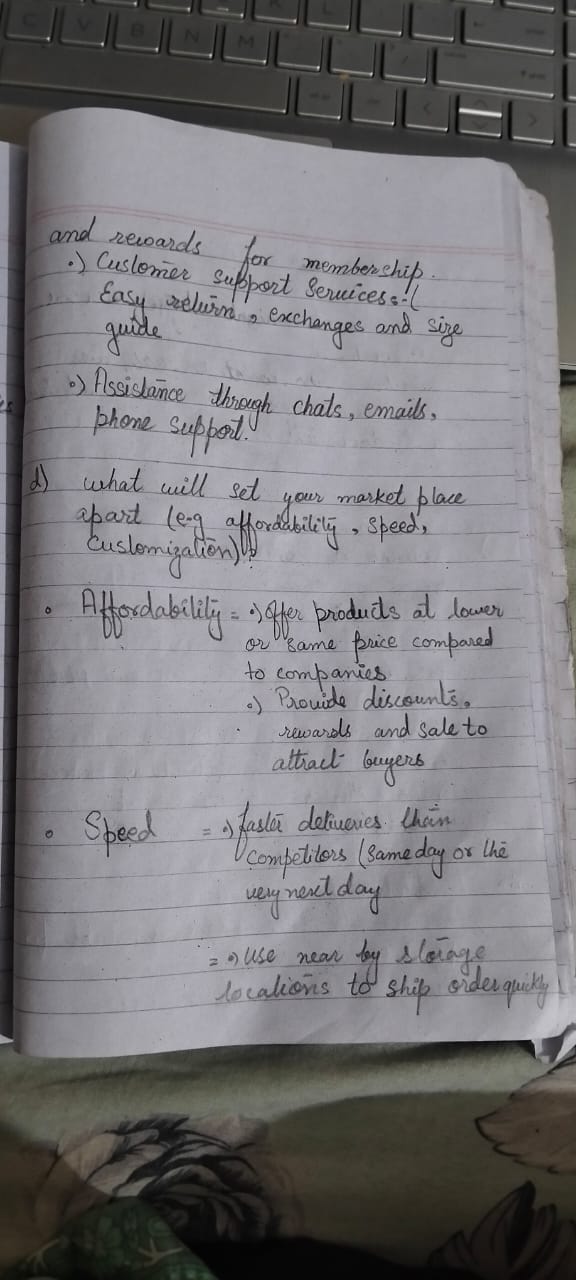 and rewards for membership.
•) Customer support Services:-(
Easy return, exchanges and size
guide
•) Assistance through chats, emails,
phone support.
d) what will set your market place
apart (e-g affordability, speed,
customization)?
• Affordability = •) Offer products at lower
or same price compared
to companies
•) Provide discounts,
rewards and sale to
attract buyers
• Speed = •) faster deliveries than
competitors (Same day or the
very next day
= •) Use near by storage
locations to ship order quickly